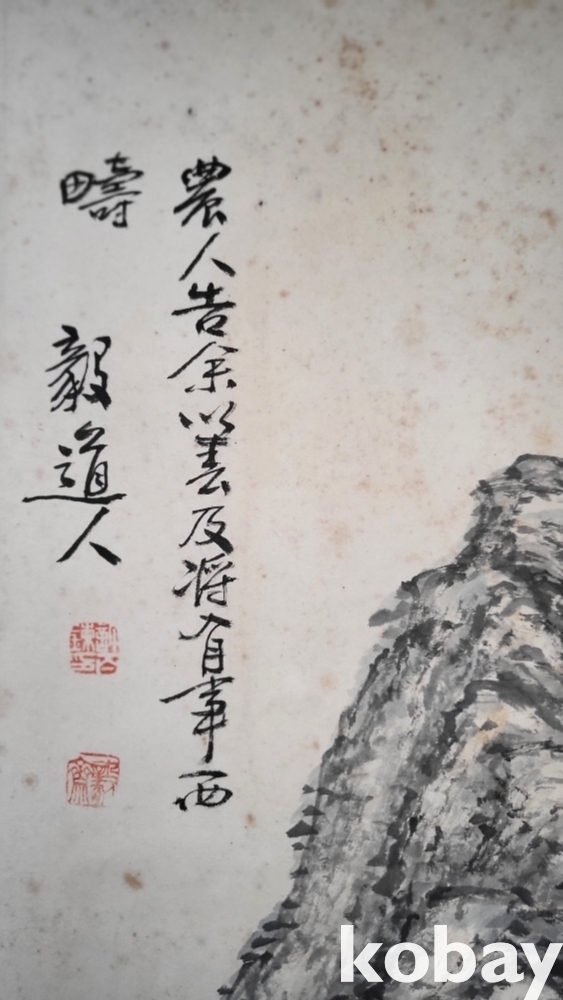 農人告余以春及将有事西
疇
毅道人
kobay